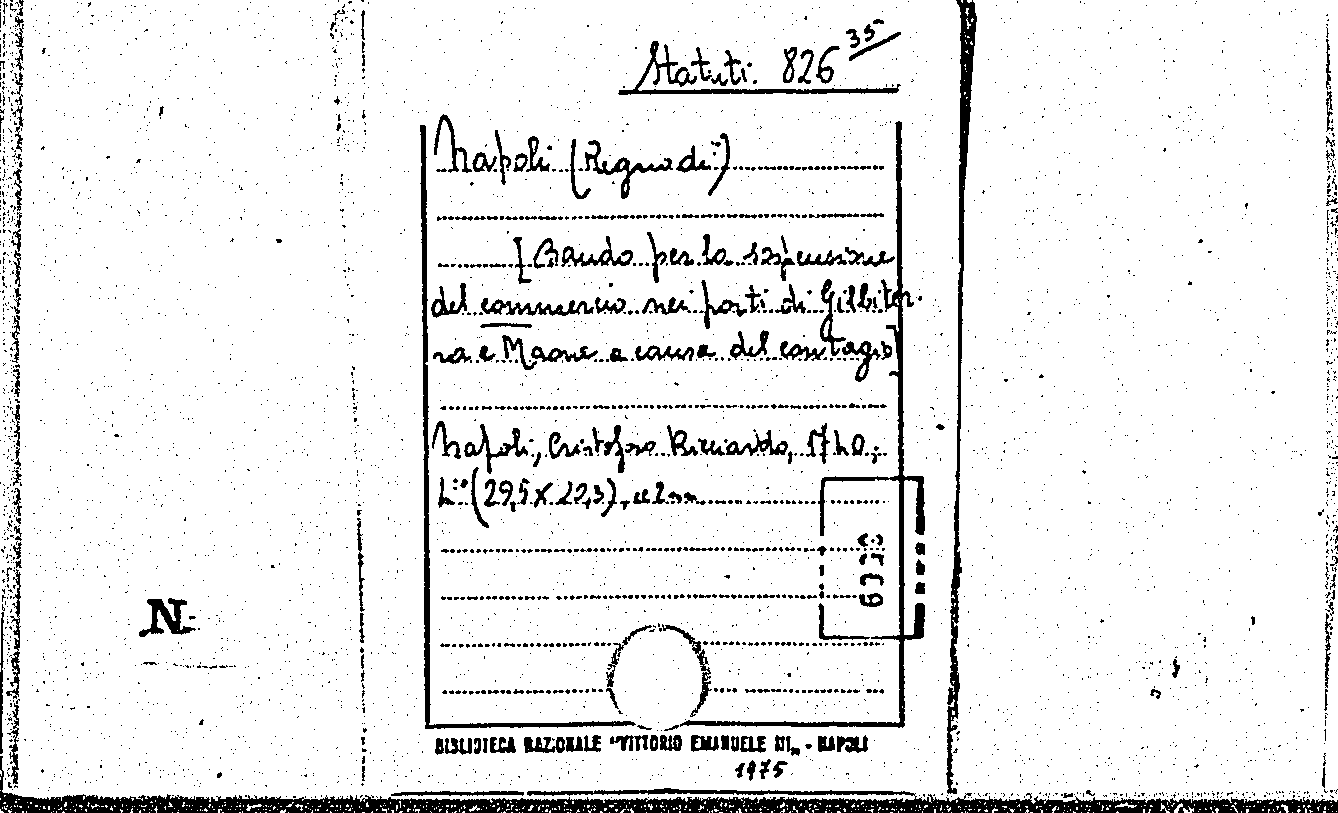 Statuti. 826 35
Napoli (Regno di)
[Bando per la sospensione
del commercio nei porti di Gilbiter-
ra e Maone a causa del contagio]
Napoli, Cristoforo Ricciardo, 1740;
(29,5 X 20,3), cc 2 nn
N
BIBLIOTECA NAZIONALE "VITTORIO EMANUELE III" - NAPOLI
1975